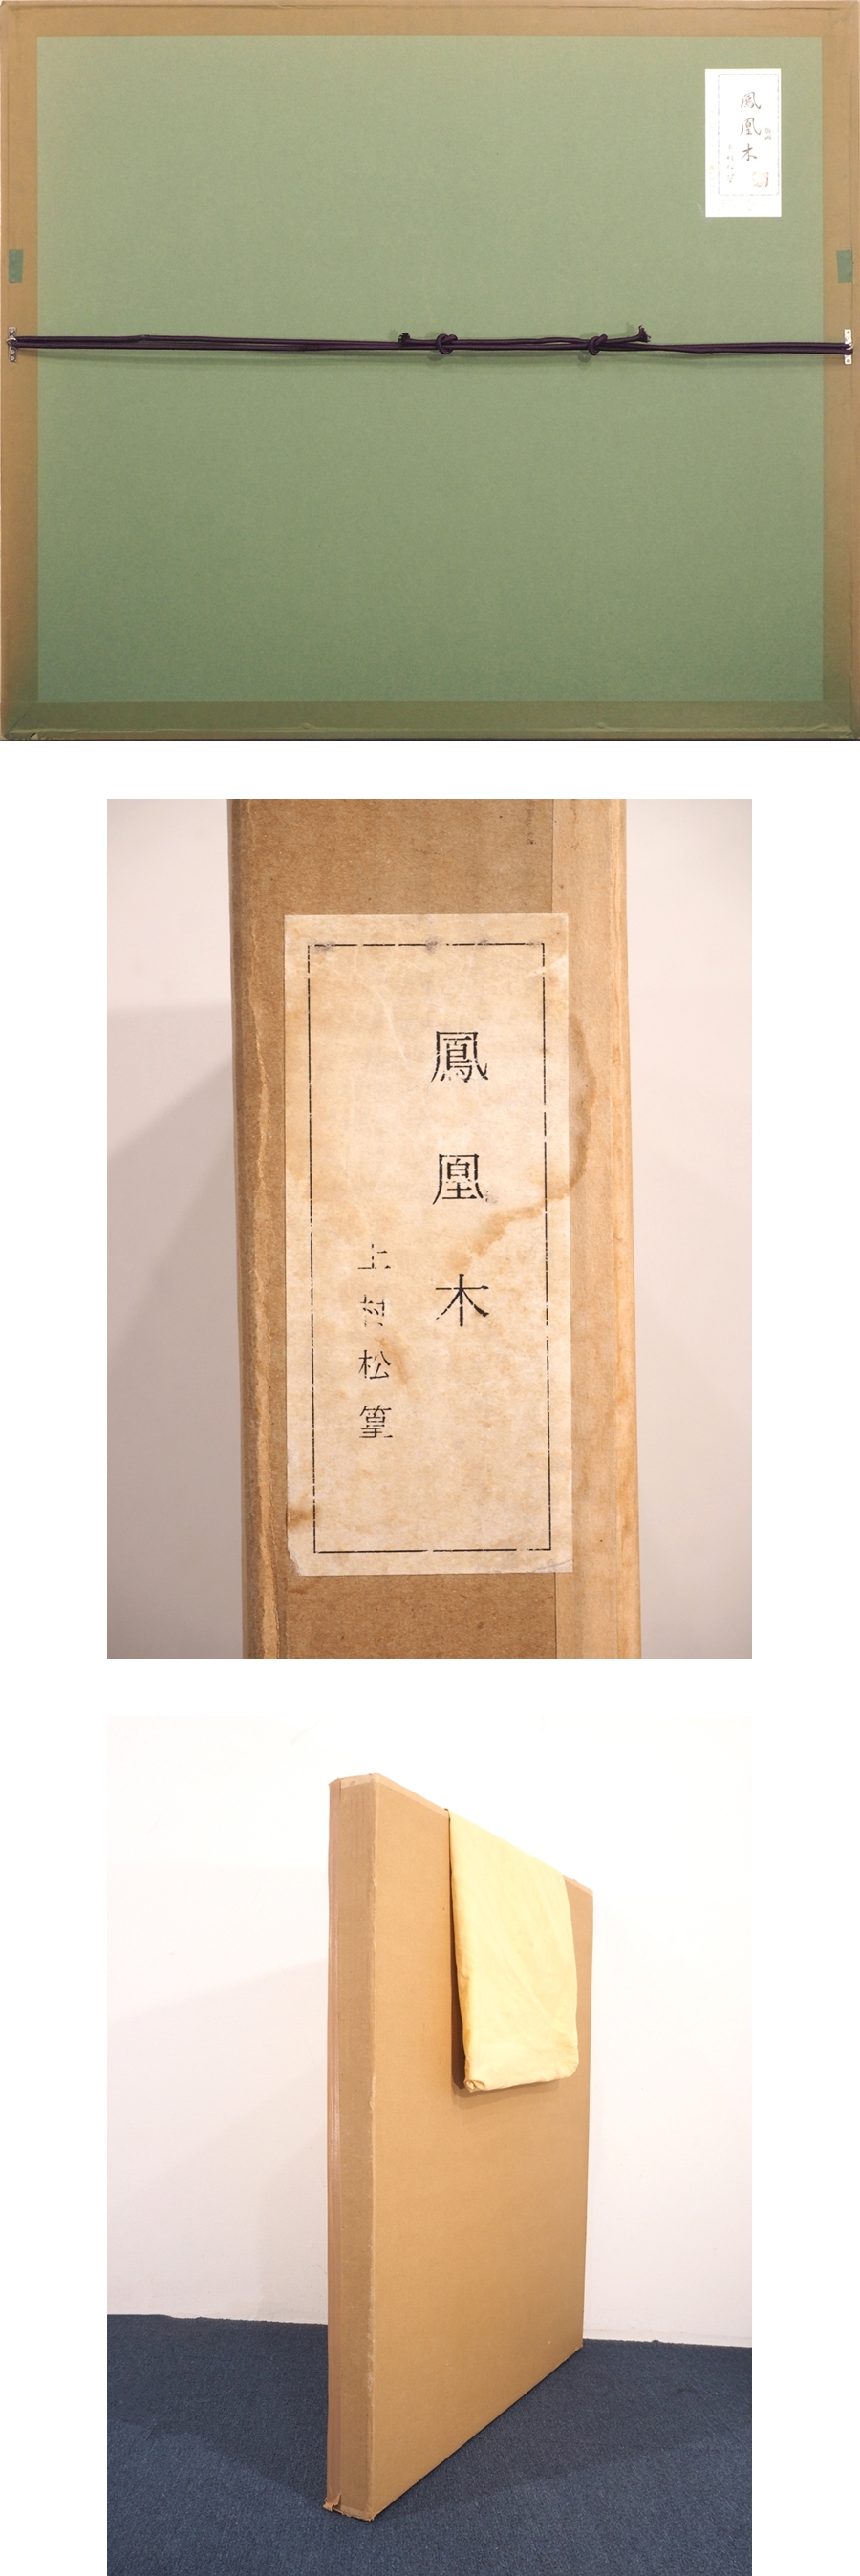 鳳凰木
鳳凰木
上村松篁